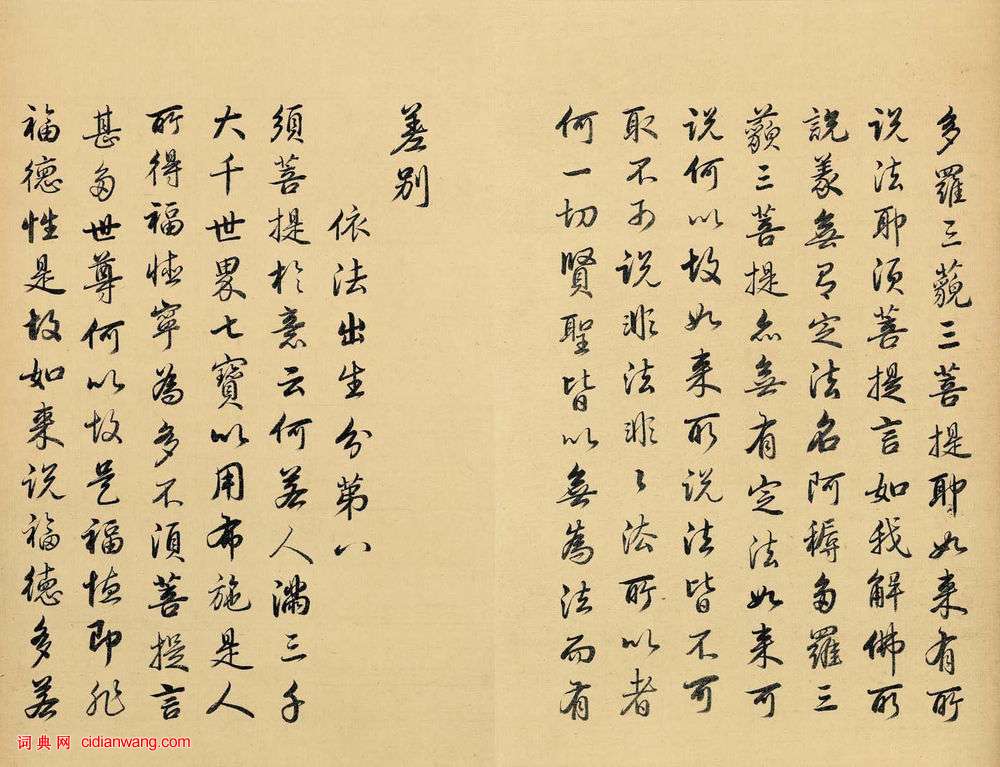 多羅三藐三菩提耶如来有所
说法耶须菩提言如我解佛所
說義無有定法名阿耨多羅三
藐三菩提亦無有定法如来可
说何以故如来所说法皆不可
取不可说非法非々法所以者
何一切賢聖皆以無為法而有
差别
依法出生分第八
須菩提於意云何若人满三千
大千世界七寶以用布施是人
所得福德寧為多不須菩提言
甚多世尊何以故是福德即非
福德性是故如来说福德多若
词典网 cidianwang.com